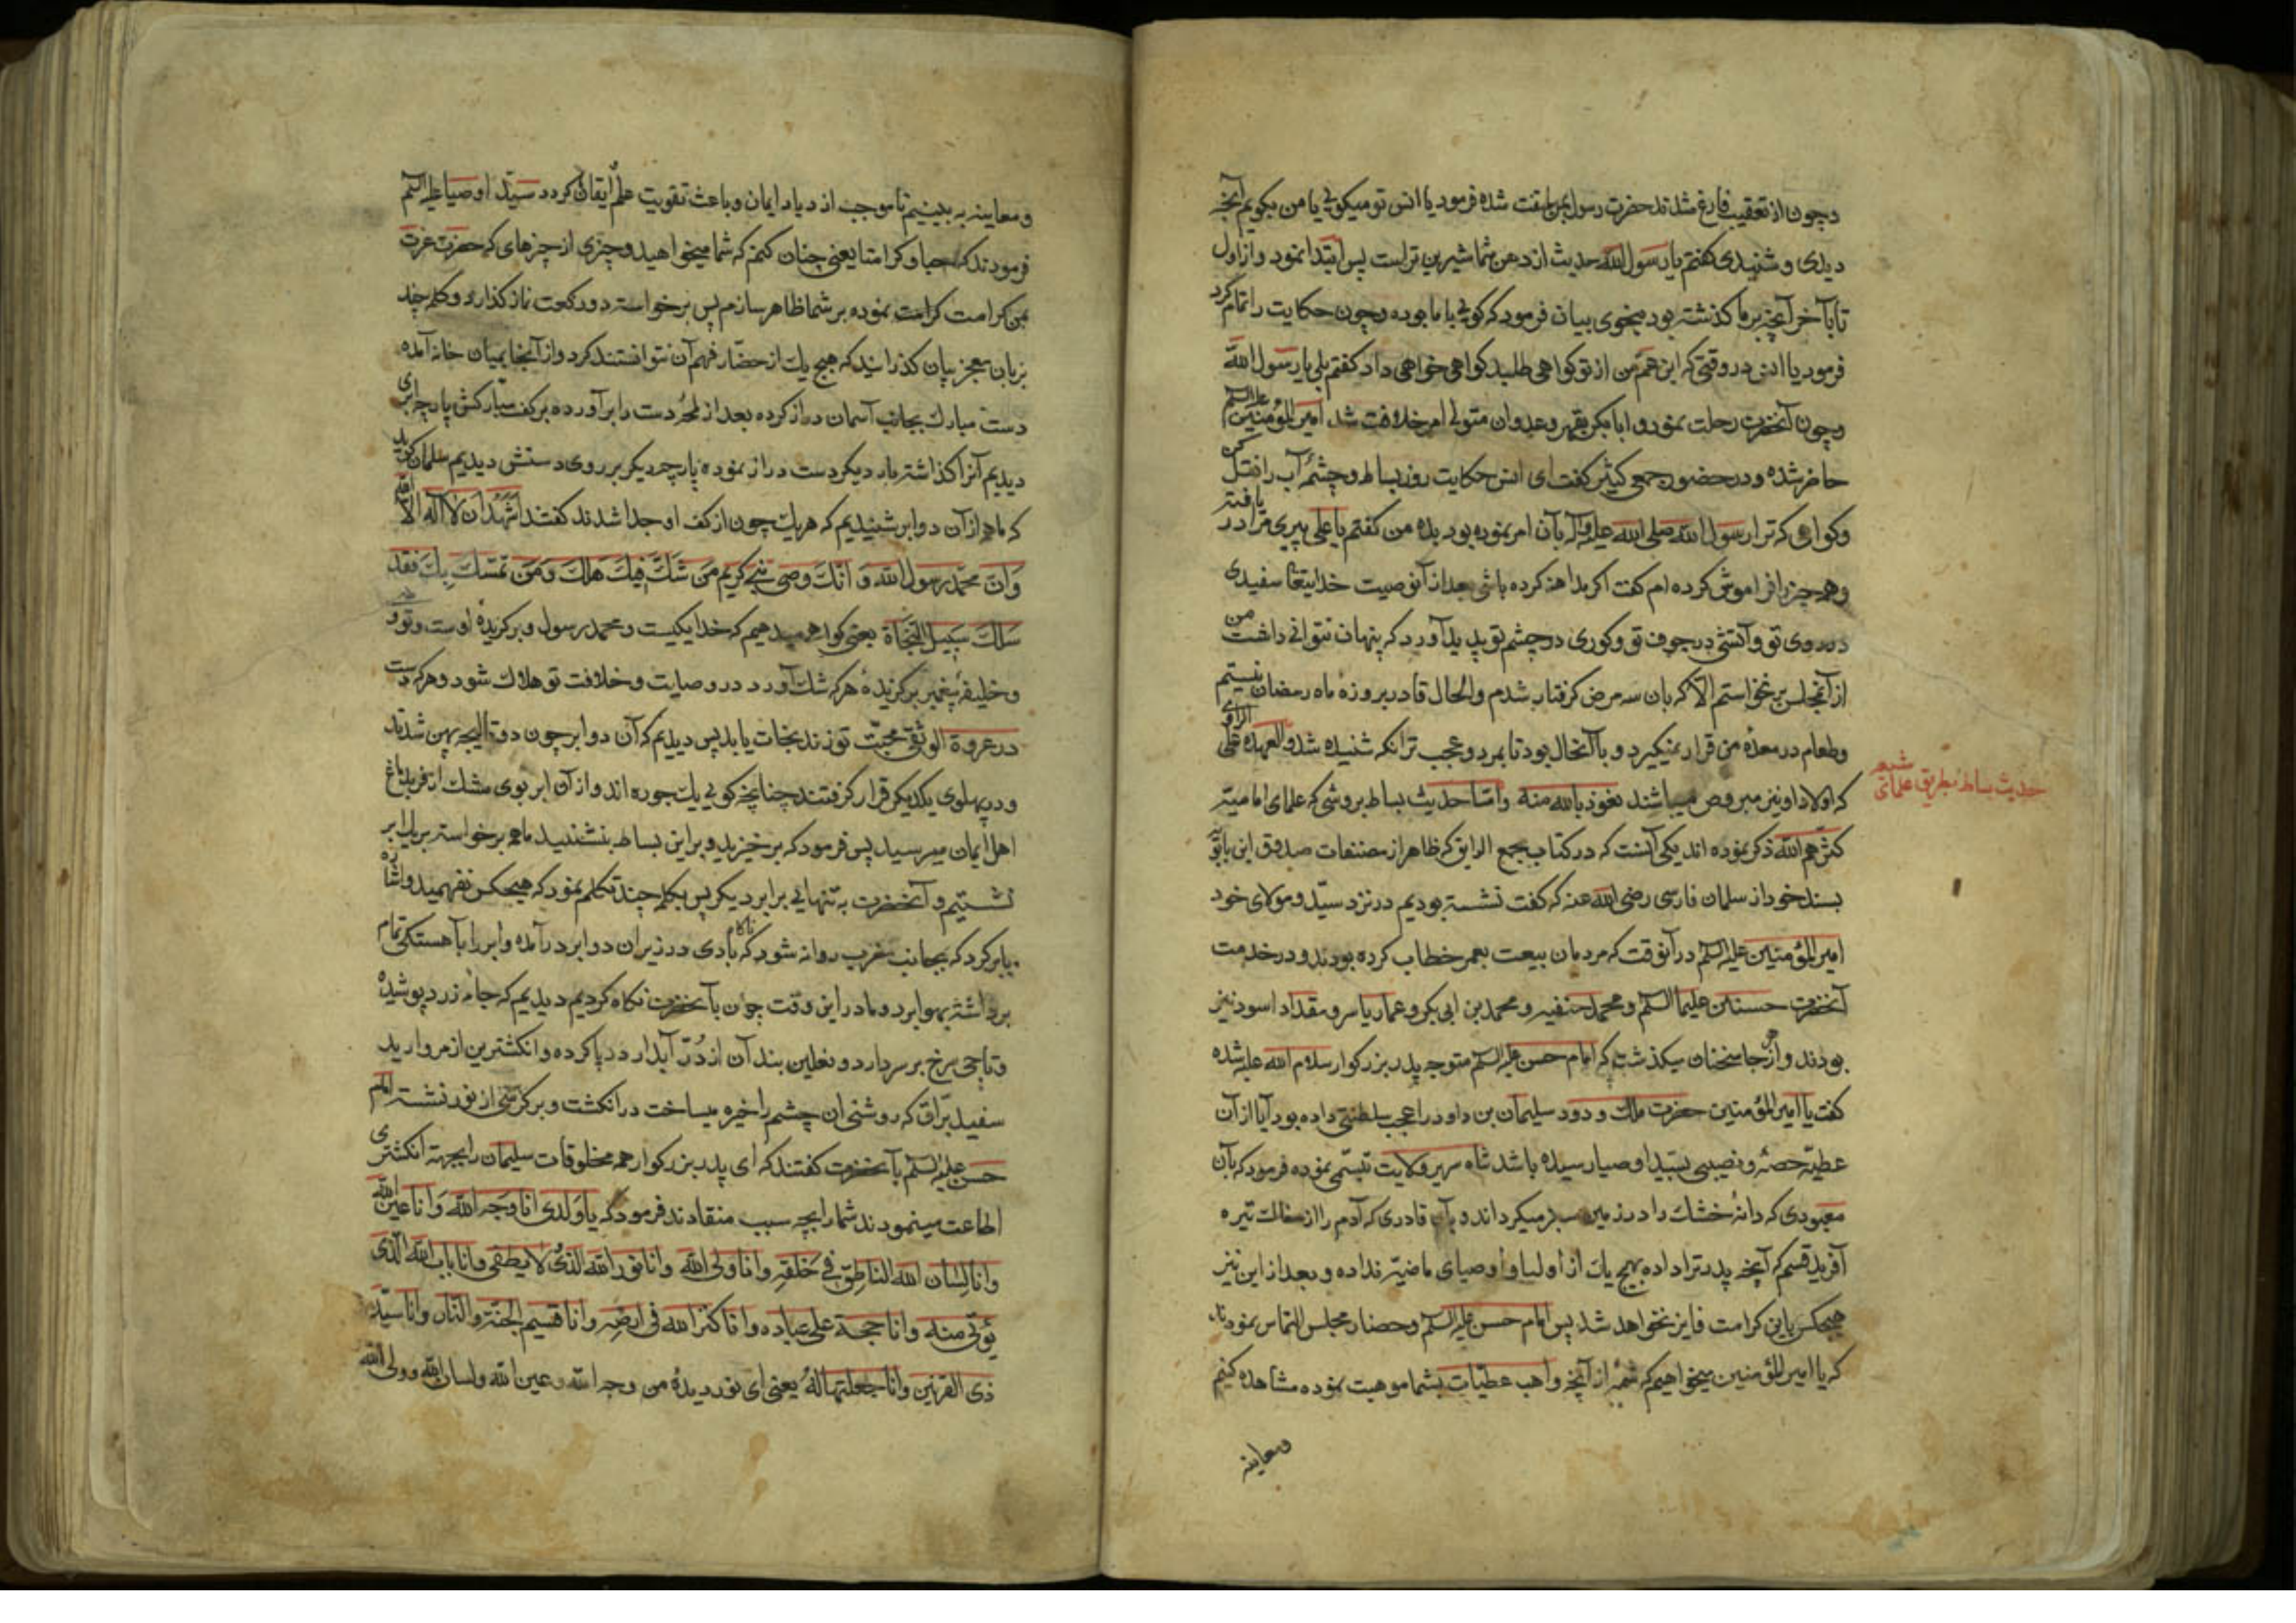 وچون از تعقیب فارغ شدند حضرت رسول بمن ملتفت شده فرمود یا انس تو میکوئی یا من بکویم آنچه
دیدی و شنیدی کفتم یا رسول الله حدیث از دهن شما شیرین تر است پس ابتدا نمود و از اول
تا بآخر آنچه بر ما کذشته بود بنحوی بیان فرمود که کوئی با ما بوده وچون حکایت را تمام کرد
فرمود یا انس در وقتی که ابن عم من از تو کواهی طلبد کواهی خواهی داد کفتم بلی یا رسول الله
وچون آنحضرت رحلت نمود و ابابکر بقهر وعدوان متولی امر خلافت شد امیر المؤمنین علیه السلم
حاضر شده و در حضور جمعی کثیر کفت ای انس حکایت روز بساط وچشمهٔ آب را نقل کن
وکواهی که ترا رسول الله صلی الله علیه وآله بآن امر نموده بود بده من کفتم یا علی پیری مرا دریافته
وهمه چیز را فراموش کرده ام کفت اکر مداهنه کرده باشی بعد از آنوصیت خدایتعا سفیدی
در روی تو وآتشی در جوف تو وکوری در چشم تو پدید آورد که پنهان نتوانی داشت من
از آنمجلس بر نخواستم الا که بان سه مرض کرفتار شدم والحال قادر بروزهٔ ماه رمضان نیستم
وطعام در معدهٔ من قرار نمیکیرد و با آنحال بود تا بمرد وعجب تر انکه شنیده شد والعهده علی الراوی
که اولاد او نیز مبروص میباشند نعوذ بالله منه واما حدیث بساط بروشی که علمای امامیه
کثرهم الله ذکر نموده اند یکی آنست که در کتاب مجمع الرایق که ظاهرا از مصنفات صدوق ابن بابویه
بسند خود از سلمان فارسی رضی الله عنه که کفت نشسته بودیم در نزد سید ومولای خود
امیر المؤمنین علیه السلم در آنوقت که مردمان بیعت بعمر خطاب کرده بودند و در خدمت
آنحضرت حسنین علیهما السلم ومحمد حنفیه ومحمد بن ابی بکر وعمار یاسر ومقداد اسود نیز
بودند و از هر جا سخنان میکذشت که امام حسن علیه السلم متوجه پدر بزرکوار سلام الله علیه شده
کفت یا امیر المؤمنین حضرت ملک ودود سلیمان بن داود را عجب سلطنتی داده بود آیا از آن
عطیه حصه ونصیبی بسید اوصیا رسیده باشد شاه سریر ولایت تبسمی نموده فرمود که بآن
معبودی که دانهٔ خشک را در زمین سبز میکرداند و بآن قادری که آدم را از خاک تیره
آفرید قسم که آنچه پدر ترا داده بهیچ یک از اولیا واوصیای ماضیه نداده و بعد از این نیز
هیچکس باین کرامت فایز نخواهد شد پس امام حسن علیه السلم وحضار مجلس التماس نمودند
که یا امیر المؤمنین میخواهیم که شمهٔ از آنچه واهب عطیات بشما موهبت نموده مشاهده کنیم
ومعاینه
حدیث بساط بطریق علمای شیعه
ومعاینه به بینیم تا موجب ازدیاد ایمان وباعث تقویت علم ایقان کردد سید اوصیا علیه السلم
فرمودند که حبا وکرامتا یعنی چنان کنم که شما میخواهید وچیزی از چیزهای که حضرت عزت
بمن کرامت کرامت نموده بر شما ظاهر سازم پس برخواسته دو رکعت نماز کذارد وکلمه چند
بزبان معجز بیان کذرانید که هیچ یک از حضار فهم آن نتوانستند کرد و از آنجا بمیان خانه آمده
دست مبارک بجانب آسمان دراز کرده بعد از لمحهٔ دست را بر آورده بر کف مبارکش پارچه ابری
دیدیم آنرا کذاشته بار دیکر دست دراز نموده پارچه دیکر بر روی دستش دیدیم سلمان کوید
که ما همه از آن دو ابر شنیدیم که هر یک چون از کف او جدا شدند کفتند اشهد ان لا اله الا الله
وان محمد رسول الله وانک وصی نبی کریم من شک فیک هلک ومن تمسک بک فقد
سلک سبیل النجاة یعنی کواهی میدهیم که خدا یکیست ومحمد رسول وبرکزیدهٔ اوست وتو وصی
وخلیفه پیغمبر برکزیدهٔ هر که شک آورد در وصایت وخلافت تو هلاک شود وهر که دست
در عروة الوثقی محبت تو زند نجات یابد پس دیدیم که آن دو ابر چون دو قالیچه پهن شدند
و در پهلوی یکدیکر قرار کرفتند چنانچه کوئی یک جوره اند و از آن ابر بوی مشک ازفر بدماغ
اهل ایمان میرسید پس فرمود که برخیزید و براین بساط بنشینید ما همه برخواسته بریک ابر
نشستیم و آنحضرت به تنهایی برابر دیکر پس بکلمه چند تکلم نمود که هیچکس نفهمید واشاره
بابر کرد که بجانب مغرب روانه شود که ناکاه بادی در زیر آن دو ابر درآمده وابر را بآهستکی تمام
برداشته بهوا برد و ما در این وقت چون بآنحضرت نکاه کردیم دیدیم که جامهٔ زرد پوشیده
وتاجی سرخ بر سر دارد و نعلین بند آن از دُرّ آبدار در پا کرده وانکشترین از مروارید
سفید براق که روشنی ان چشم را خیره میساخت در انکشت وبر کرسی از نور نشسته امام
حسن علیه السلم بآنحضرت کفتند که ای پدر بزرکوار همه مخلوقات سلیمان را بجهة انکشتری
اطاعت مینمودند شما را بچه سبب منقادند فرمود که یا ولدی انا وجه الله وانا عین الله
وانا لسان الله الناطق فی خلقه وانا ولی الله وانا نور الله الذی لا یطفی وانا باب الله الذی
یؤتی منه وانا حجة علی عباده وانا کنز الله فی ارضه وانا قسیم الجنة والنار وانا سید
ذی القرنین وانا جعلتها له یعنی ای نور دیدهٔ من وجه الله وعین الله ولسان الله وولی الله